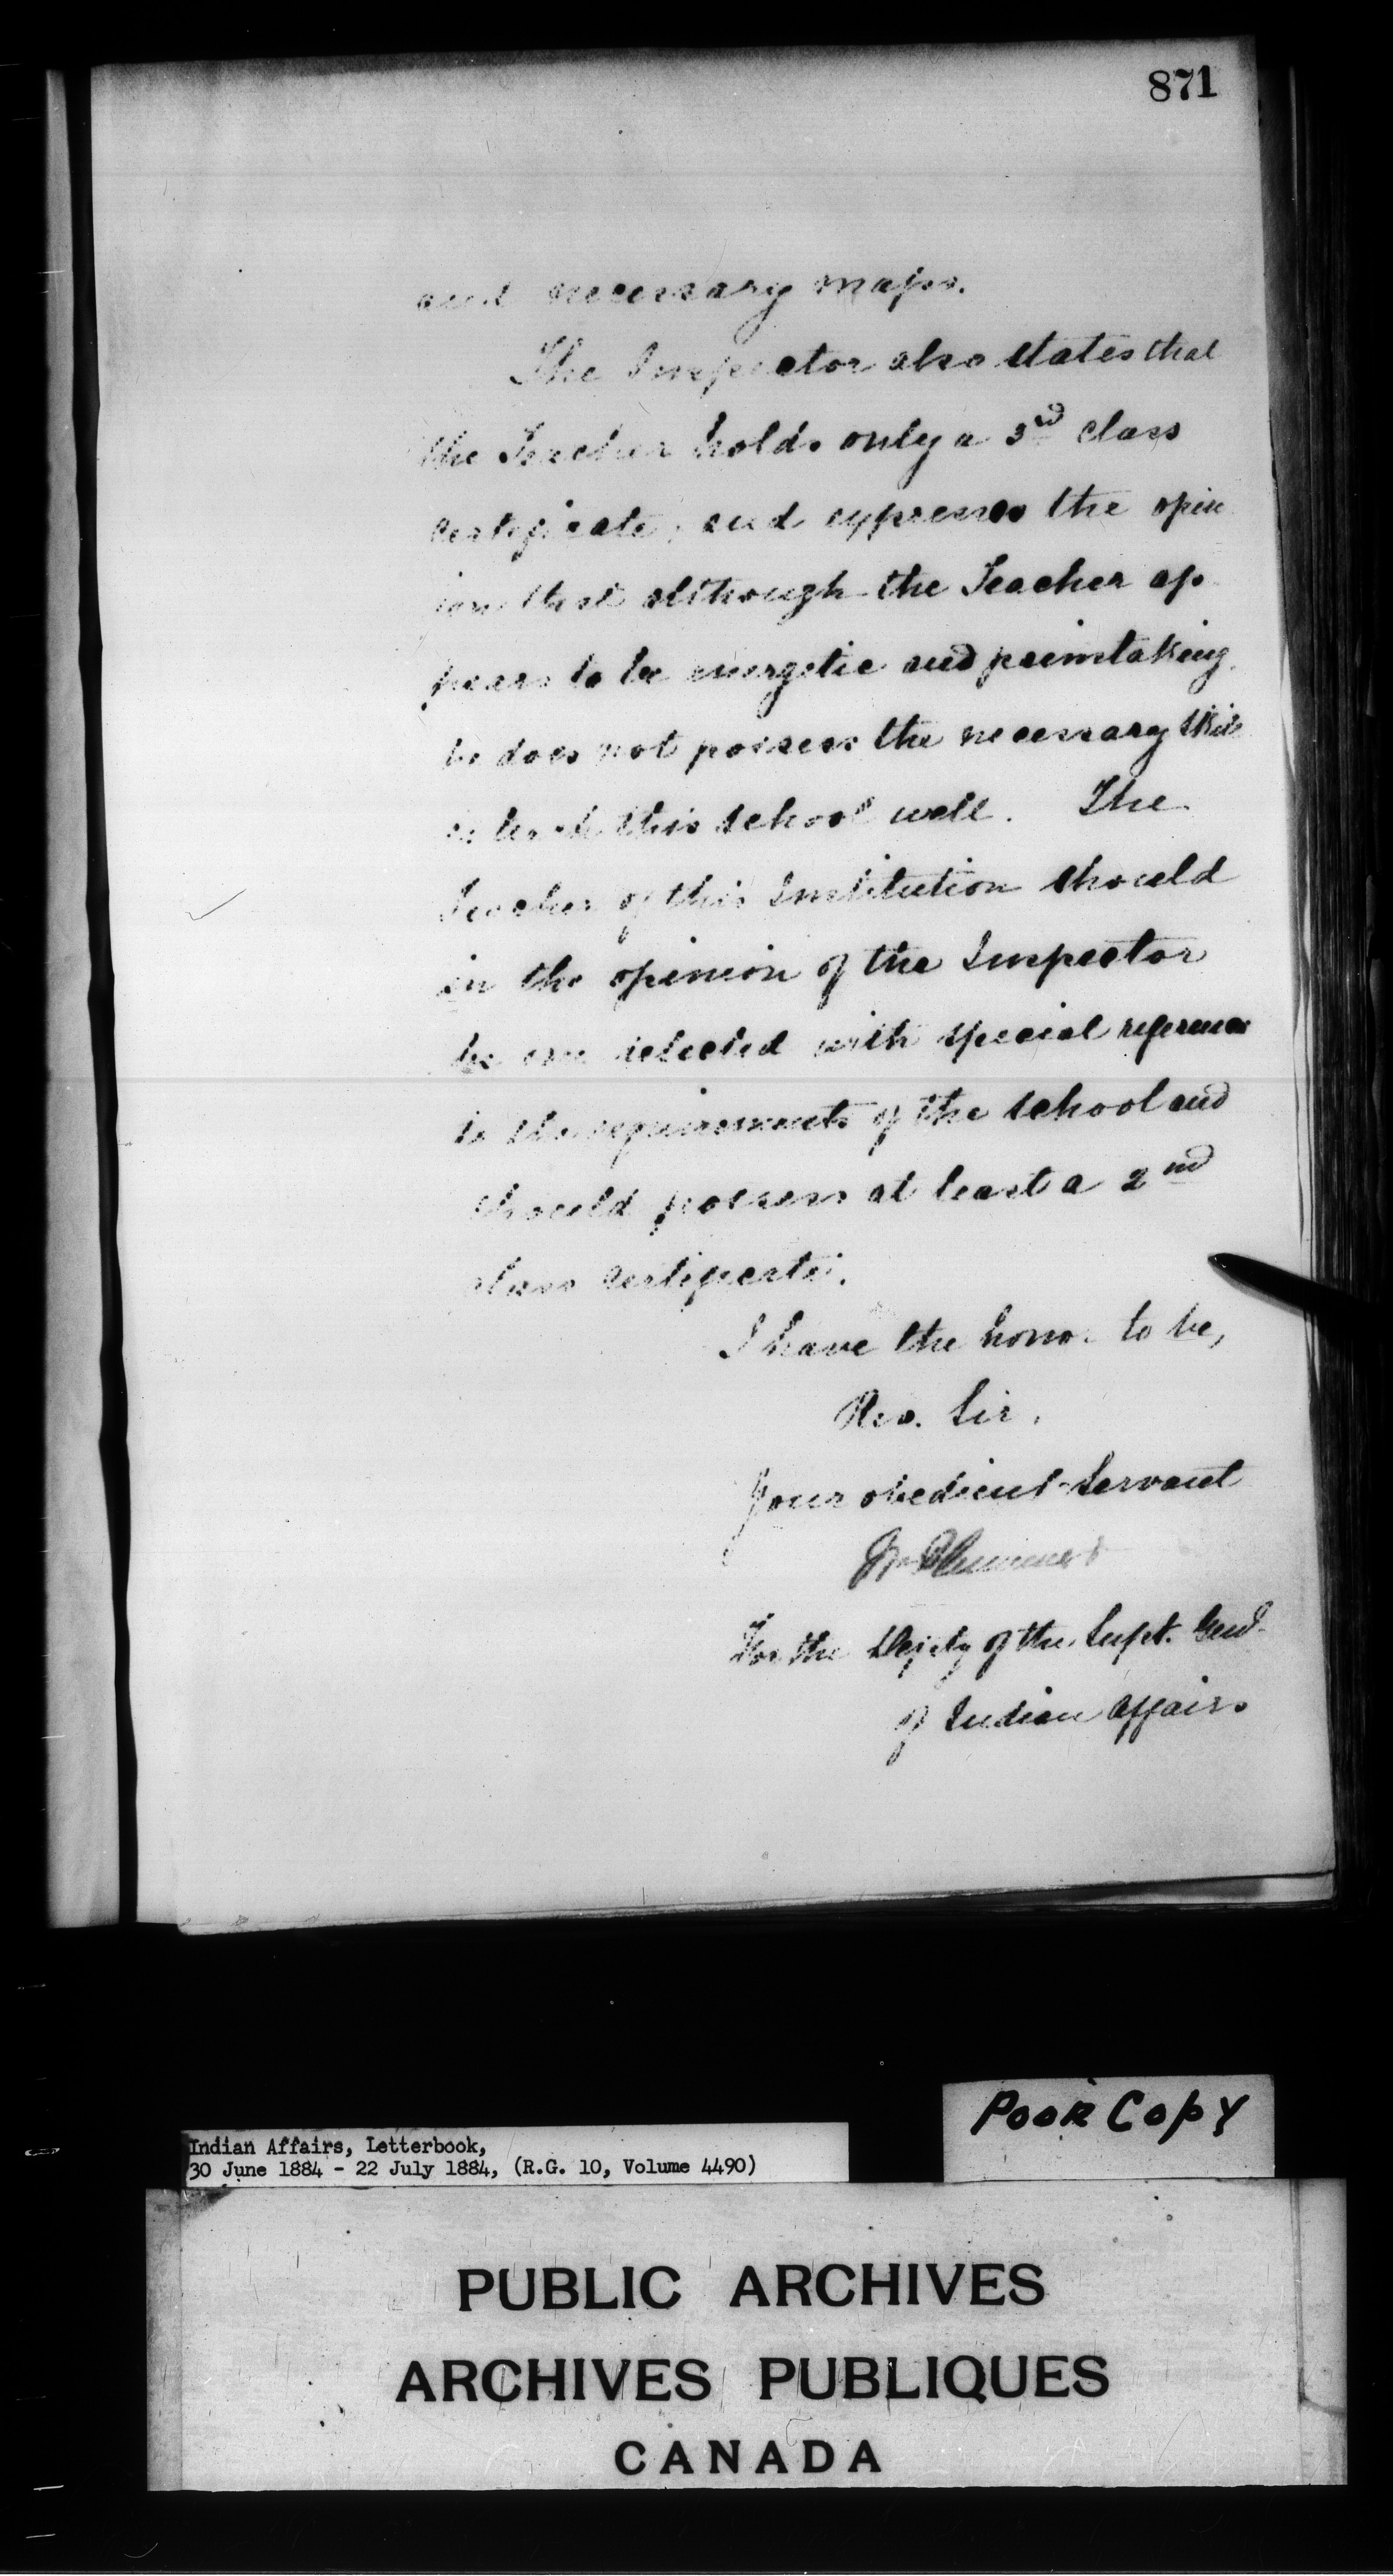 871
and necessary maps.
The Inspector also states that
the Teacher holds only a 3rd class
certificate, and expresses the opin
ion that although the Teacher ap
pears to be energetic and painstaking
he does not possess the necessary skill
to teach this school well. The
Teacher of this Institution should
in the opinion of the Inspector
be one selected with special reference
to the requirements of the school and
should possess at least a 2nd
class certificate.
I have the honor to be,
Rev. Sir,
Your obedient Servant
For the Deputy of the Supt. Genl
of Indian Affairs
Poor Copy
Indian Affairs, Letterbook,
30 June 1884 - 22 July 1884, (R.G. 10, Volume 4490)
PUBLIC ARCHIVES
ARCHIVES PUBLIQUES
CANADA